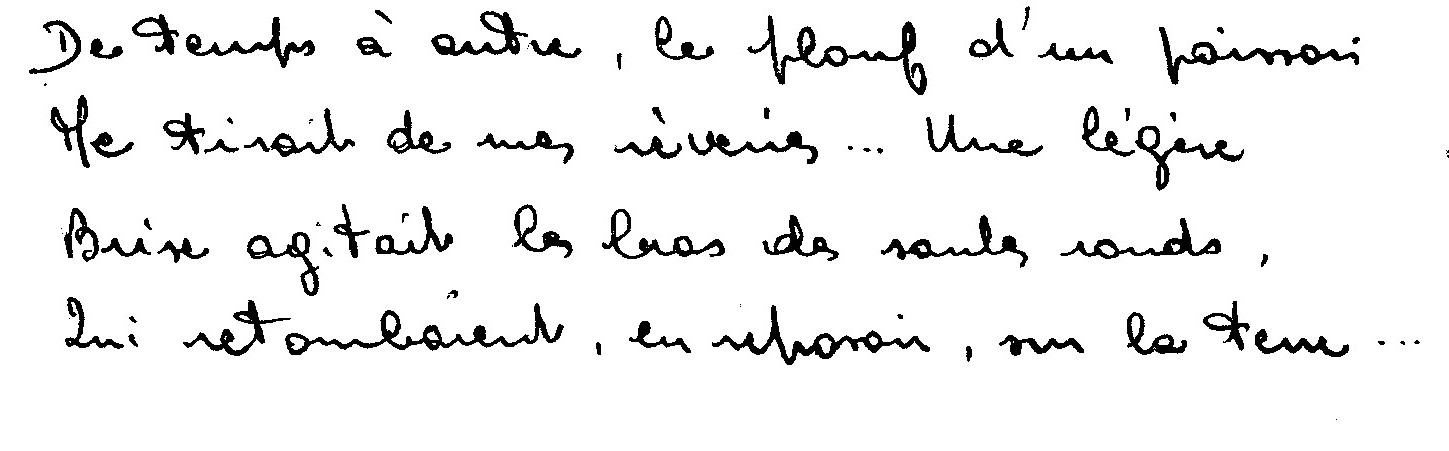 De temps à autre, le plouf d'un poisson
Me tirait de mes rêveries... Une légère
Brise agitait les bras des saules ronds,
Qui retombaient, en reposoir, sur la terre...